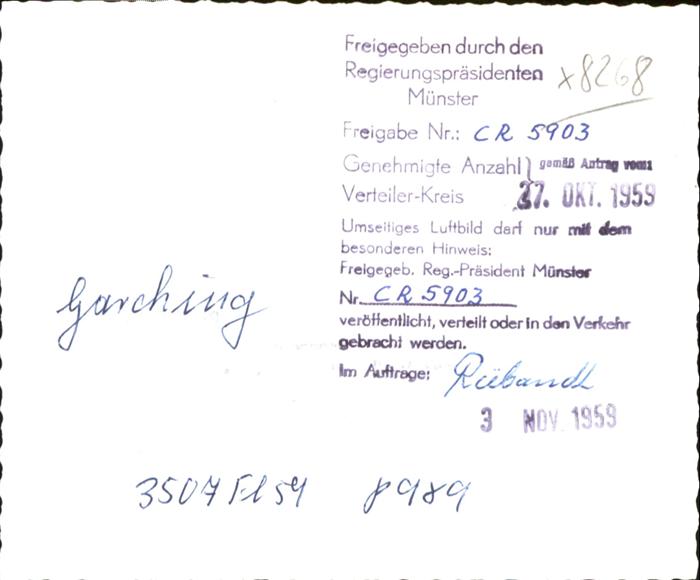 Freigegeben durch den
Regierungspräsidenten
x8268
Münster
Freigabe Nr.: CR 5903
Genehmigte Anzahl } gemäß Antrag vom:
Verteiler-Kreis 27. OKT. 1959
Umseitiges Luftbild darf nur mit dem
besonderen Hinweis:
Freigegeb. Reg.-Präsident Münster
Nr. CR 5903
veröffentlicht, verteilt oder in den Verkehr
gebracht werden.
Im Auftrage:
3 NOV. 1959
Garching
3507 8989